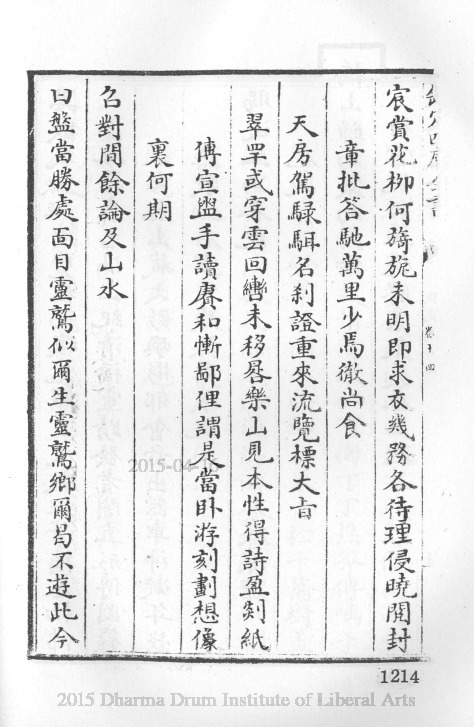 宸賞花柳何旖旎未明即求衣幾務各待理侵曉開封
章批答馳萬里少焉徹尚食
天房駕騄駬名刹證重來流覽標大㫖
翠罕或穿雲回轡未移晷樂山見本性得詩盈剡紙
傳宣盥手讀賡和慚鄙俚謂是當卧游刻劃想像
裏何期
召對間餘論及山水
曰盤當勝處面目靈鷲似爾生靈鷲鄉爾曷不遊此今
卷十四
2015-04-
1214
2015 Dharma Drum Institute of Liberal Arts